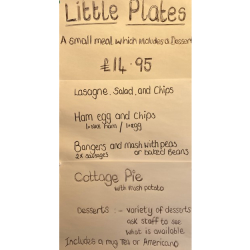 Little Plates
A small meal which includes a Dessert
£14.95
Lasagne, Salad, and Chips
Ham egg and Chips
1x egg
Bangers and mash with peas
2x sausages or baked beans
Cottage Pie
with mash potato
Desserts :- variety of desserts
ask staff to see
what is available
Includes a mug Tea or Americano